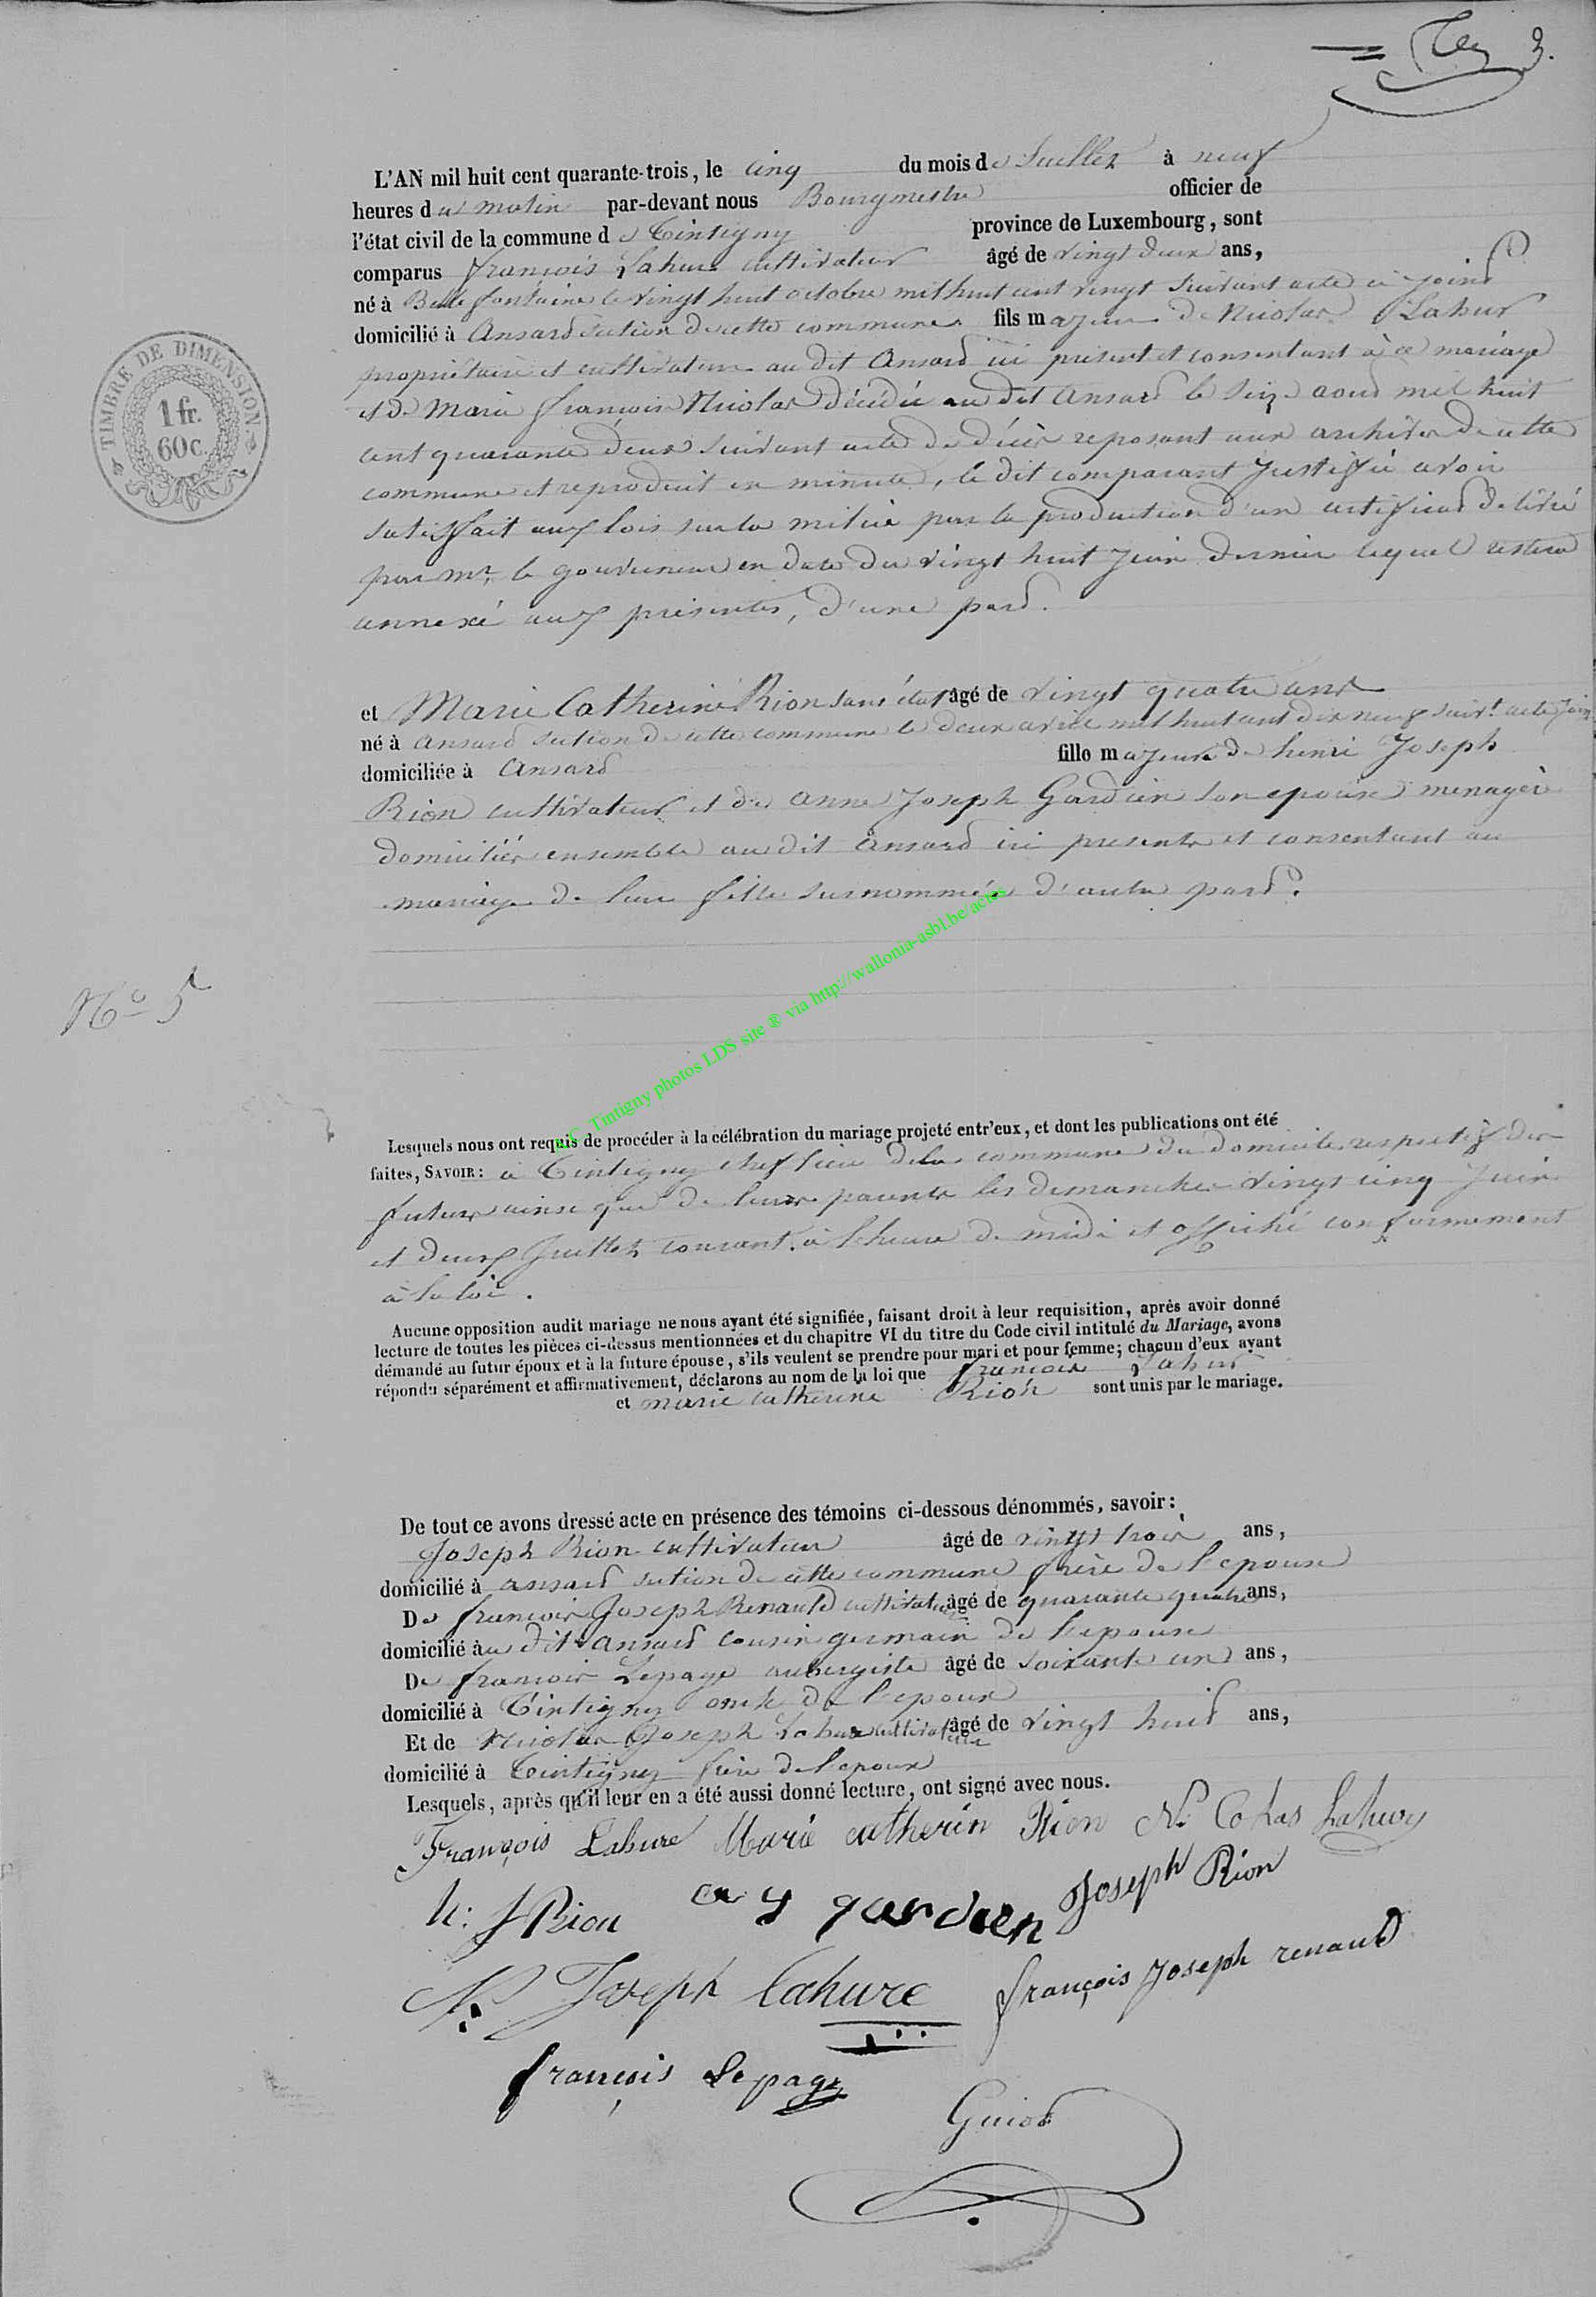 3.
L'AN mil huit cent quarante-trois, le cinq du mois de Juillet à neuf
heures du matin par-devant nous Bourgmestre officier de
l'état civil de la commune de Tintigny province de Luxembourg, sont
comparus françois Lahure cultivateur âgé de vingt deux ans,
né à Belle fontaine le vingt huit octobre mil huit cent vingt suivant acte ci joint
domicilié à Ansard section de cette commune fils majeur de Nicolas Lahure
propriétaire et cultivateur au dit Ansard ici présent et consentant à ce mariage
et de Marie françoise Nicolas décédée au dit Ansard le seize aout mil huit
cent quarante deux suivant acte de décès reposant aux archives de cette
commune et reproduit en minute, le dit comparant justifié avoir
satisfait aux lois sur la milice par la production d'un certificat délivré
par Mr. le gouverneur en date du vingt huit juin dernier lequel restera
annexé aux présentes, d'une part.
et Marie Catherine Rion sans état âgé de vingt quatre ans
né à Ansard section de cette commune le deux avril mil huit cent dix neuf suivt. acte joint
domiciliée à Ansard fille majeure de henri Joseph
Rion cultivateur et de anne Joseph Gardien son epouse menagère
domiciliés ensemble au dit Ansard ici presents et consentant au
mariage de leur fille surnommée d'autre part.
TIMBRE DE DIMENSION.
1 fr.
60c.
No 5
Tintigny photos LDS site ® via http://wallonia-asbl.be/actes
Lesquels nous ont requis de procéder à la célébration du mariage projeté entr'eux, et dont les publications ont été
faites, SAVOIR: à Tintigny chef lieu de la commune du domicile respectif des
futurs ainsi que de leurs parents les dimanches vingt cinq Juin
et deux Juillet courant à l'heure de midi et affiché conformement
à la loi.
Aucune opposition audit mariage ne nous ayant été signifiée, faisant droit à leur requisition, après avoir donné
lecture de toutes les pièces ci-dessus mentionnées et du chapitre VI du titre du Code civil intitulé du Mariage, avons
démandé au futur époux et à la future épouse, s'ils veulent se prendre pour mari et pour femme; chacun d'eux ayant
répondu séparément et affirmativement, déclarons au nom de la loi que francois Lahure
et marie catherine Rion sont unis par le mariage.
De tout ce avons dressé acte en présence des témoins ci-dessous dénommés, savoir:
Joseph Rion cultivateur âgé de vingt trois ans,
domicilié à ansard section de cette commune frère de l'epouse
De francois Joseph Renauld cultivateur âgé de quarante quatre ans,
domicilié au dit ansard cousin germain de l'epouse
De francois Lepage aubergiste âgé de soixante un ans,
domicilié à Tintigny oncle de l'epoux
Et de Nicolas Joseph Lahure cultivateur âgé de vingt huit ans,
domicilié à Tintigny frère de l'epoux
Lesquels, après qu'il leur en a été aussi donné lecture, ont signé avec nous.
François Lahure Marie catherin Rion N. Colas Lahure
h: J Rion a y gardien Joseph Rion
N. Joseph Lahure françois Joseph renauld
françois Lepage
Guiot